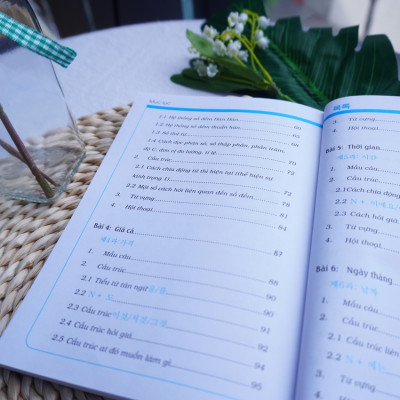 Mục lục
1.1 Hệ thống số đếm Hán Hàn 65
1.2 Hệ thống số đếm thuần Hàn 66
1.3 Số thứ tự 68
1.4 Cách đọc phân số, số thập phân, phần trăm,
độ C, đơn vị đo lường, tỉ lệ 70
2. Cấu trúc 72
2.1 Cách chia động từ thì hiện tại (thể hiện sự
kính trọng 1) 72
2.2 Một số cách hỏi liên quan đến số đếm 78
3. Từ vựng 81
4. Hội thoại 84
Bài 4: Giá cả 87
제4과: 가격
1. Mẫu câu 88
2. Cấu trúc 89
2.1 Tiểu từ tân ngữ 을/를 90
2.2 N + 90
2.3 Cấu trúc 이것/저것/그것 91
2.4 Cấu trúc hỏi giá 92
2.5 Cấu trúc ai đó muốn làm gì 95
목록
3. Từ vựng
4. Hội thoại
Bài 5: Thời gian
제5과: 시간
1. Mẫu câu
2. Cấu trúc
2.1 Cách chia động
2.2 N +
2.3 Cách hỏi giờ
3. Từ vựng
4. Hội thoại
Bài 6: Ngày tháng
제6과: 날짜
1. Mẫu câu
2. Cấu trúc
2.1 Cấu trúc liên
2.2 N +
3. Từ vựng
4. Hội thoại